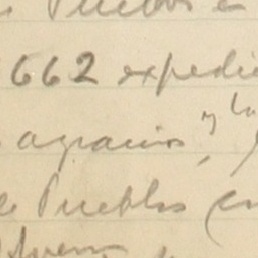 Pueblos e
662 expedie
agrarios, y la
de Pueblos (en